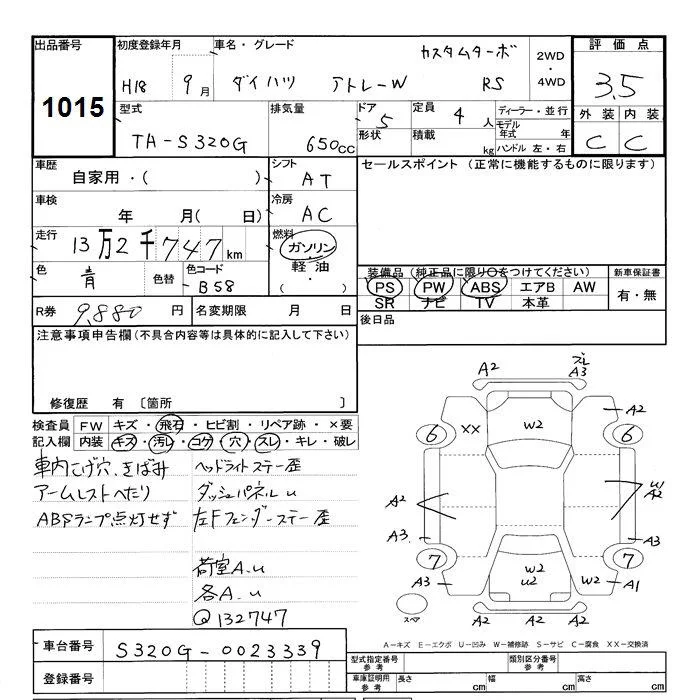 出品番号
1015
初度登録年月 車名・グレード カスタムターボ
H18 9月 ダイハツ アトレーW RS
2WD
・
4WD
評価点
3.5
外装 内装
C C
型式 排気量
TA-S320G 650cc
ドア 5 定員 4人
形状 積載 kg
ディーラー・並行
モデル年式 年
ハンドル 左・右
車歴
自家用・( )
シフト
AT
セールスポイント(正常に機能するものに限ります)
車検
年 月( 日)
冷房
AC
走行
13万2千747km
燃料
ガソリン
軽油
・( )
色
青
色替
色コード
B58
装備品(純正品に限り○をつけてください)
PS PW ABS エアB AW
SR ナビ TV 本革
新車保証書
有・無
R券 9,880円 名変期限 月 日
後日品
注意事項申告欄(不具合内容等は具体的に記入して下さい)
修復歴 有 〔箇所 〕
検査員記入欄
FW キズ・飛石・ヒビ割・リペア跡・×要
内装 キズ・汚レ・コゲ・穴・スレ・キレ・破レ
車内こげ穴、きばみ ヘッドライトステー歪
アームレストへたり ダッシュパネルu
ABSランプ点灯せず 左Fフェンダーステー歪
荷室A.u
各A.u
Q132747
A2 ズレ
A3
A2
6 XX W2 6
A2 W
A2
A3. A3
7 7
A3 W2
U2 W2 A1
スペア
A2 A2 A2
A-キズ E-エクボ U-凹み W-補修跡 S-サビ C-腐食 XX-交換済
車台番号 S320G-0023339
登録番号
型式指定番号
参考
類別区分番号
参考
車庫証明用
参考
長さ cm 幅 cm 高さ cm